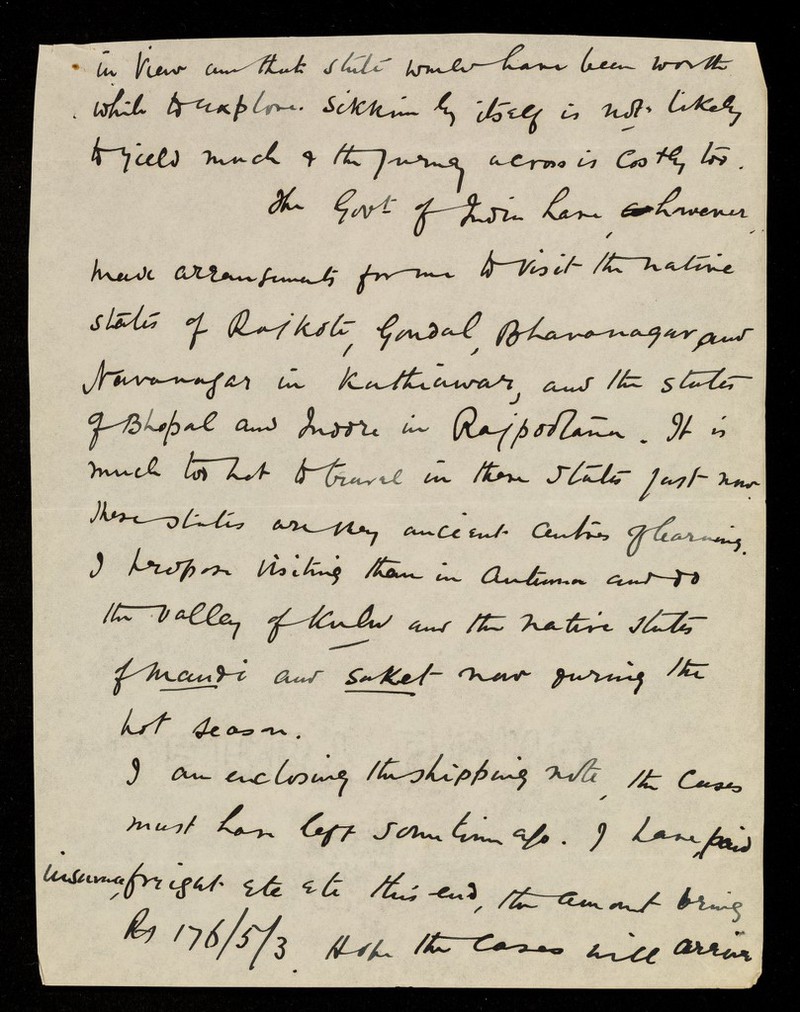 in view and that state would have been worth
while to explore. Sikkim by itself is not likely
to yield much & the journey across is costly too.
The Govt of India have, however,
made arrangements for me to visit the native
states of Rajkote, Gondal, Bhavanagar and
Navanagar in Kathiawar, and the states
of Bhopal and Indore in Rajpootana. It is
much too hot to travel in these states just now.
These states are very ancient centres of learning.
I propose visiting them in Autumn and do
the valley of Kulu and the native states
of Mandi and Suket now during the
hot season.
I am enclosing the shipping note, the cases
must have left sometime ago. I have paid
insurance, freight etc etc this end, the amount being
Rs 176/5/3. Hope the cases will arrive